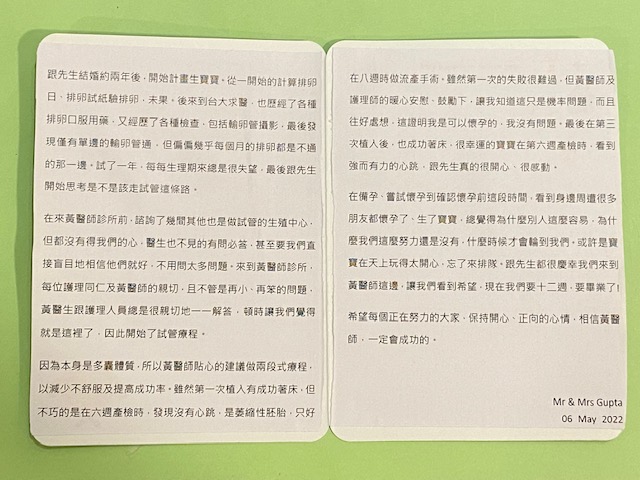 跟先生結婚約兩年後，開始計畫生寶寶。從一開始的計算排卵
日、排卵試紙驗排卵，未果。後來到台大求醫，也歷經了各種
排卵口服用藥，又經歷了各種檢查，包括輸卵管攝影，最後發
現僅有單邊的輸卵管通，但偏偏幾乎每個月的排卵都是不通
的那一邊。試了一年，每每生理期來總是很失望，最後跟先生
開始思考是不是該走試管這條路。
在來黃醫師診所前，諮詢了幾間其他也是做試管的生殖中心，
但都沒有得我們的心，醫生也不見的有問必答，甚至要我們直
接盲目地相信他們就好，不用問太多問題。來到黃醫師診所，
每位護理同仁及黃醫師的親切，且不管是再小、再笨的問題，
黃醫生跟護理人員總是很親切地一一解答，頓時讓我們覺得
就是這裡了，因此開始了試管療程。
因為本身是多囊體質，所以黃醫師貼心的建議做兩段式療程，
以減少不舒服及提高成功率。雖然第一次植入有成功著床，但
不巧的是在六週產檢時，發現沒有心跳，是萎縮性胚胎，只好
在八週時做流產手術。雖然第一次的失敗很難過，但黃醫師及
護理師的暖心安慰、鼓勵下，讓我知道這只是機率問題，而且
往好處想，這證明我是可以懷孕的，我沒有問題。最後在第三
次植入後，也成功著床，很幸運的寶寶在第六週產檢時，看到
強而有力的心跳，跟先生真的很開心、很感動。
在備孕、嘗試懷孕到確認懷孕前這段時間，看到身邊周遭很多
朋友都懷孕了、生了寶寶，總覺得為什麼別人這麼容易，為什
麼我們這麼努力還是沒有，什麼時候才會輪到我們。或許是寶
寶在天上玩得太開心，忘了來排隊。跟先生都很慶幸我們來到
黃醫師這邊，讓我們看到希望，現在我們要十二週，要畢業了!
希望每個正在努力的大家、保持開心、正向的心情，相信黃醫
師，一定會成功的。
Mr & Mrs Gupta
06 May 2022